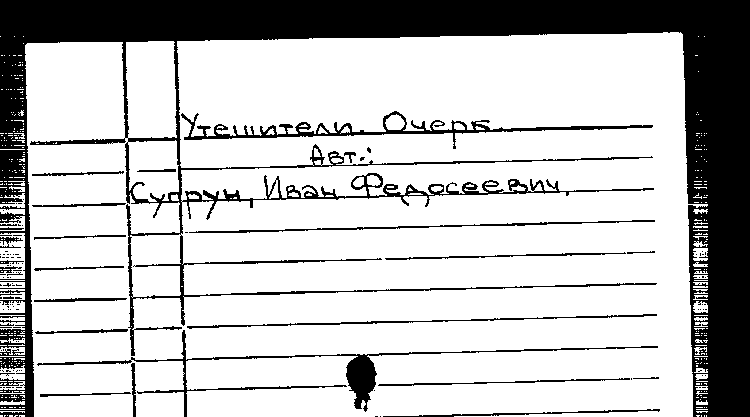 Утешители. Очерк.
Авт.:
Супрун, Иван Федосеевич.